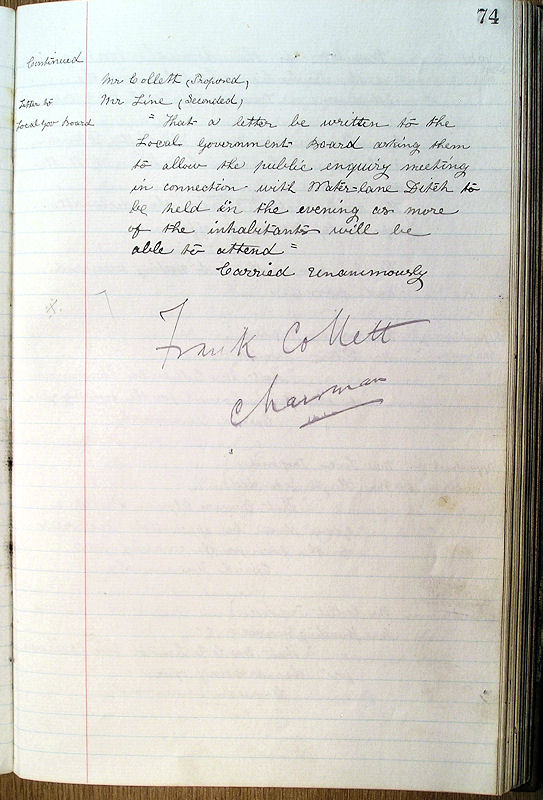 74
Continued
Mr Collett (Proposed,
Letter to
Mr Line (Seconded,
Local Gov Board
"That a letter be written to the
Local Government Board asking them
to allow the public enquiry meeting
in connection with Water-lane Ditch to
be held in the evening as more
of the inhabitants will be
able to attend"
Carried unanimously
Frank Collett
Chairman